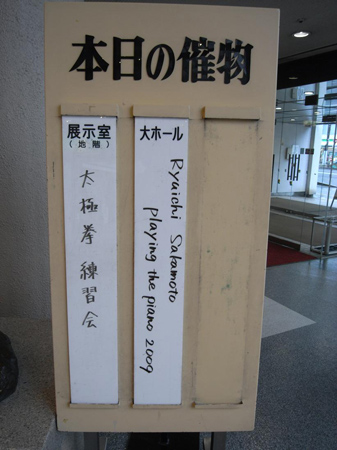 本日の催物
展示室
(地階)
太極拳 練習会
大ホール
Ryuichi Sakamoto
playing the piano 2009